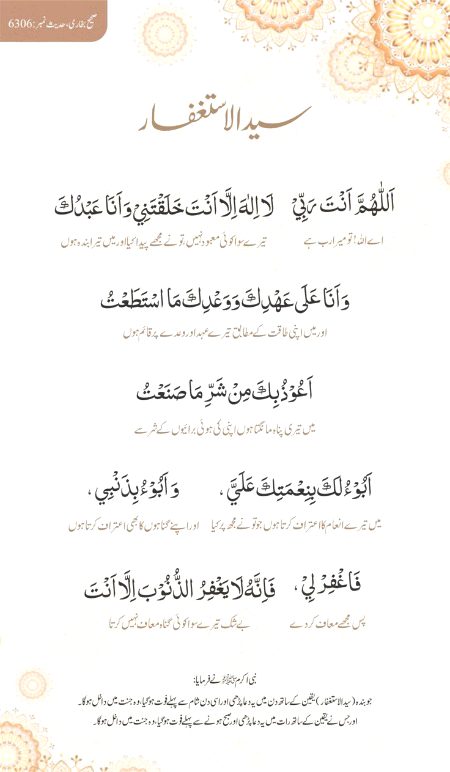 صحیح بخاری، حدیث نمبر: 6306
سید الاستغفار
اَللّٰهُمَّ اَنْتَ رَبِّيْ لَا اِلٰهَ اِلَّا اَنْتَ خَلَقْتَنِيْ وَاَنَا عَبْدُكَ
اے اللہ! تو میرا رب ہے تیرے سوا کوئی معبود نہیں، تو نے مجھے پیدا کیا اور میں تیرا بندہ ہوں
وَاَنَا عَلَى عَهْدِكَ وَوَعْدِكَ مَا اسْتَطَعْتُ
اور میں اپنی طاقت کے مطابق تیرے عہد اور وعدے پر قائم ہوں
اَعُوْذُ بِكَ مِنْ شَرِّ مَا صَنَعْتُ
میں تیری پناہ مانگتا ہوں اپنی کی ہوئی برائیوں کے شر سے
اَبُوْءُ لَكَ بِنِعْمَتِكَ عَلَيَّ، وَاَبُوْءُ بِذَنْبِي،
میں تیرے انعام کا اعتراف کرتا ہوں جو تو نے مجھ پر کیا اور اپنے گناہوں کا بھی اعتراف کرتا ہوں
فَاغْفِرْ لِيْ، فَاِنَّهُ لَا يَغْفِرُ الذُّنُوْبَ اِلَّا اَنْتَ
پس مجھے معاف کر دے بے شک تیرے سوا کوئی گناہ معاف نہیں کرتا
نبی اکرم ﷺ نے فرمایا:
جو بندہ (سید الاستغفار) یقین کے ساتھ دن میں یہ دعا پڑھی اور اسی دن شام سے پہلے فوت ہو گیا، وہ جنت میں داخل ہوگا۔
اور جس نے یقین کے ساتھ رات میں یہ دعا پڑھی اور صبح ہونے سے پہلے فوت ہو گیا، وہ جنت میں داخل ہوگا۔